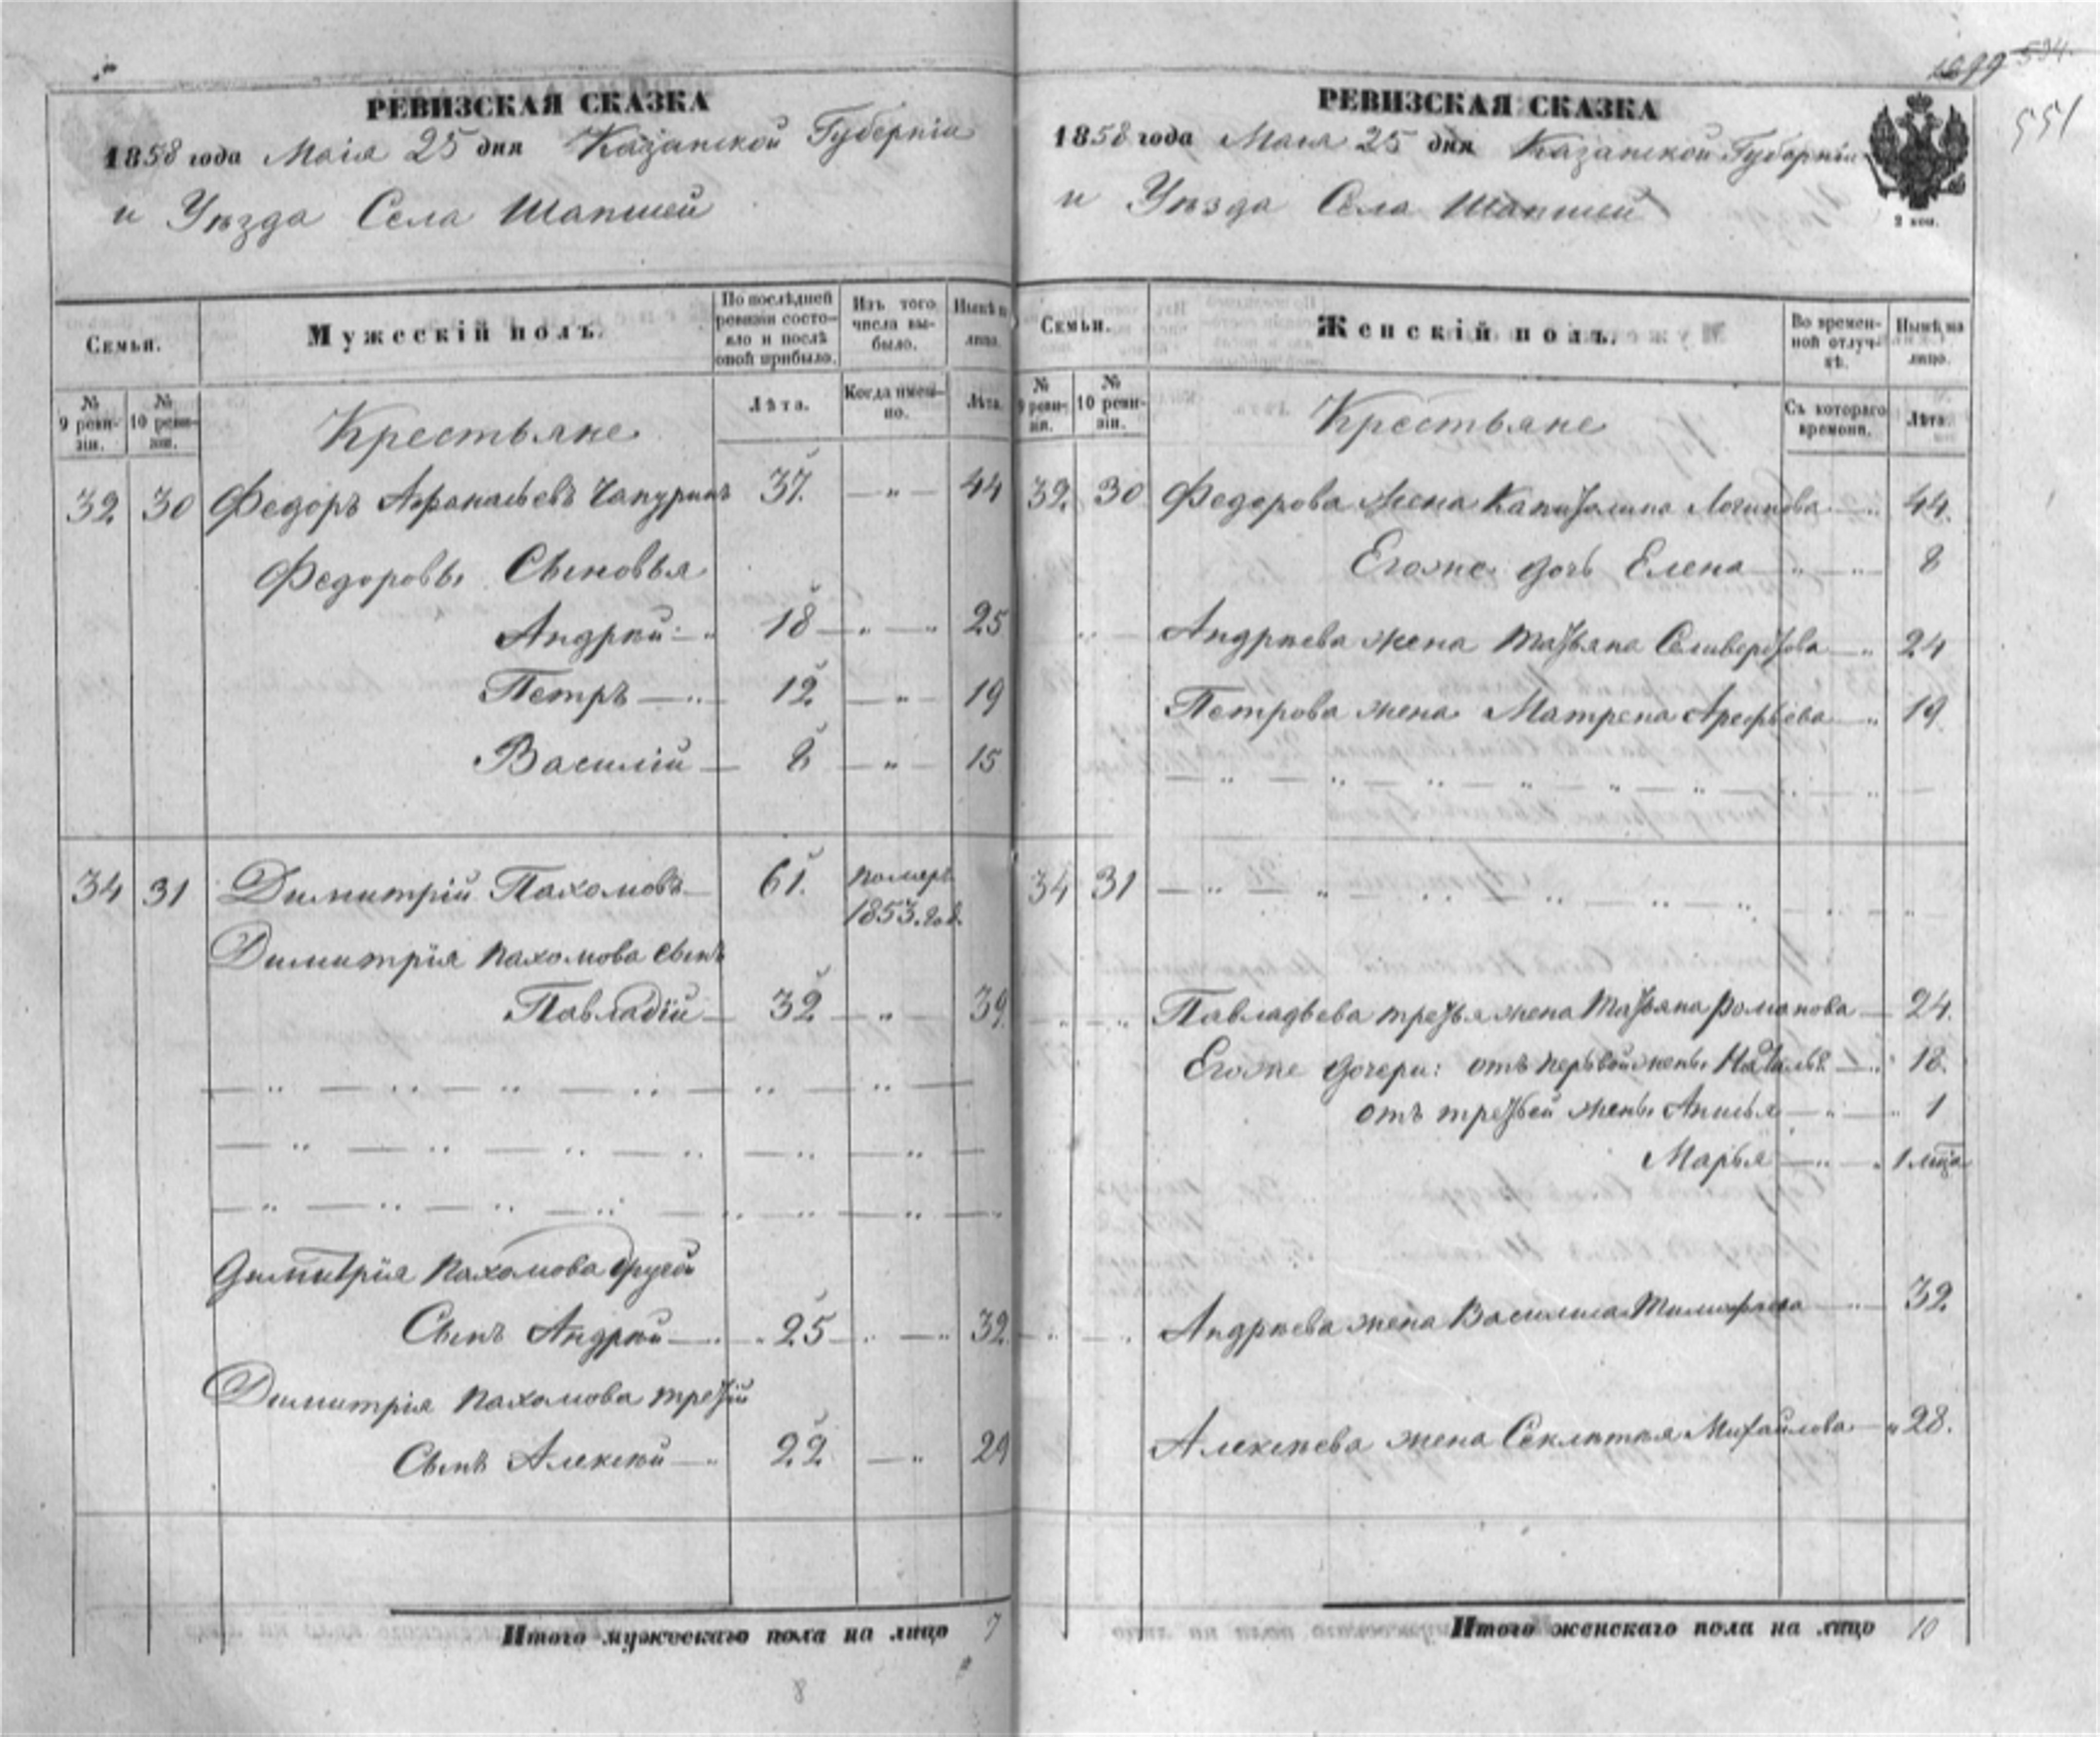 РЕВИЗСКАЯ СКАЗКА
1858 года Маія 25 дня Казанской Губерніи
и Уѣзда Села Шапшей
Семьи.
Мужескій полъ.
По послѣдней ревизіи состояло и послѣ оной прибыло.
Изъ того числа выбыло.
Нынѣ на лицо.
№ 9 ревизіи.
№ 10 ревизіи.
Крестьяне
Лѣта.
Когда именно.
Лѣта.
32 30 Федоръ Афанасьевъ Чапуринъ 37. — „ — 44
Федоровы Сыновья
Андрей — „ 18 — „ — „ 25
Петръ — „ — 12 — „ — 19
Василій — 8 — „ — 15
34 31 Димитрій Пахомовъ — 61. померъ
1853. год.
Димитрія Пахомова сынъ
Павладій — 32 — „ — 39.
Димитрія Пахомова другой
Сынъ Андрей — „ 25 — „ — „ 32.
Димитрія Пахомова третій
Сынъ Алексѣй — „ 22 — „ 29
Итого мужескаго пола на лицо 7
8
1099 534.
551
РЕВИЗСКАЯ СКАЗКА
1858 года Маія 25 дня Казанской Губерніи
и Уѣзда Села Шапшей
2 коп.
Семьи.
Женскій полъ.
Во временной отлучкѣ.
Нынѣ на лицо.
№ 9 ревизіи.
№ 10 ревизіи.
Крестьяне
Съ котораго времени.
Лѣта.
32. 30 Федорова жена Капитолина Логинова — „ 44.
Егоже дочь Елена — „ — „ — 8
Андреева жена Татьяна Селиверстова — „ 24
Петрова жена Матрена Арефьева — „ 19.
34 31
Павладьева третья жена Татьяна Романова — 24.
Егоже дочери: отъ первой жены Наталья — „ 18.
отъ третьей жены Анисья — „ — „ 1
Марья — „ — „ 1 мѣсяца
Андреева жена Василиса Тимофеева — „ — 32.
Алексеева жена Секлетея Михайлова — „ 28.
Итого женскаго пола на лицо 10